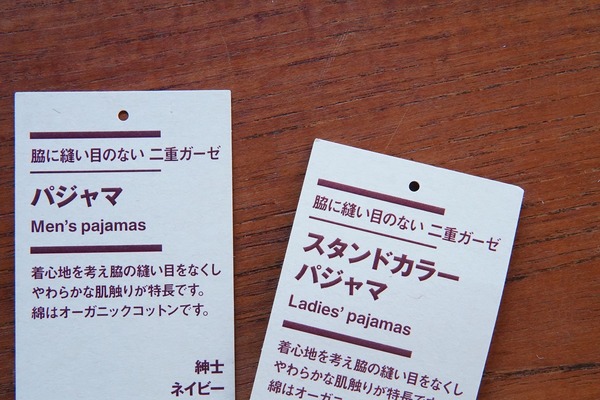 脇に縫い目のない 二重ガーゼ
パジャマ
Men's pajamas
着心地を考え脇の縫い目をなくし
やわらかな肌触りが特長です。
綿はオーガニックコットンです。
紳士
ネイビー
脇に縫い目のない 二重ガーゼ
スタンドカラー
パジャマ
Ladies' pajamas
着心地を考え脇の縫い目をなくし
やわらかな肌触りが特長で
綿はオーガニ